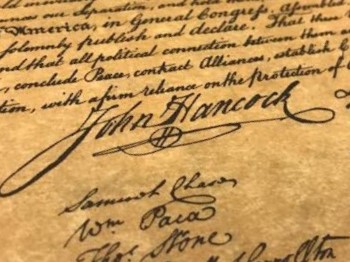 our Separation, and hold
America, in General Congress, Assembled
solemnly publish and declare, That these
and that all political connection between them a
conclude Peace, contract Alliances, establish C
tion, with a firm reliance on the Protection of
John Hancock
Samuel Chase
Wm Paca
Thos Stone